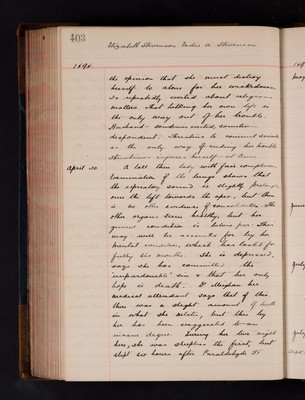 403
Elizabeth Stevenson
1896
the opinion that she must destroy
herself to atone for her wickedness.
Is repeatedly excited about religious
matters. That killing her own life is
the only way out of her trouble.
Husband - sometimes excited, sometimes
despondent. Threatens to commit suicide
as the only way of ending her trouble
herself at times
April 20 A tall thin lady with fair complexion
Examination of the lungs shows that
the expiratory sound is slightly prolonged
over the left towards the apex, but there
is no other evidence of consolidation. The
other organs seem healthy, but her
general condition is below par. This
may well be accounted for by her
mental condition, which has lasted for
fully six months. She is depressed,
says she has committed the
unpardonable sin & that her only
hope is death. Dr Meighan her
medical attendant says that of this
there was a slight amount of truth
in what she relates, but this by
her has been exaggerated to an
insane degree. During her two nights
here, she was sleepless the first, but
slept six hours after Paraldehyde